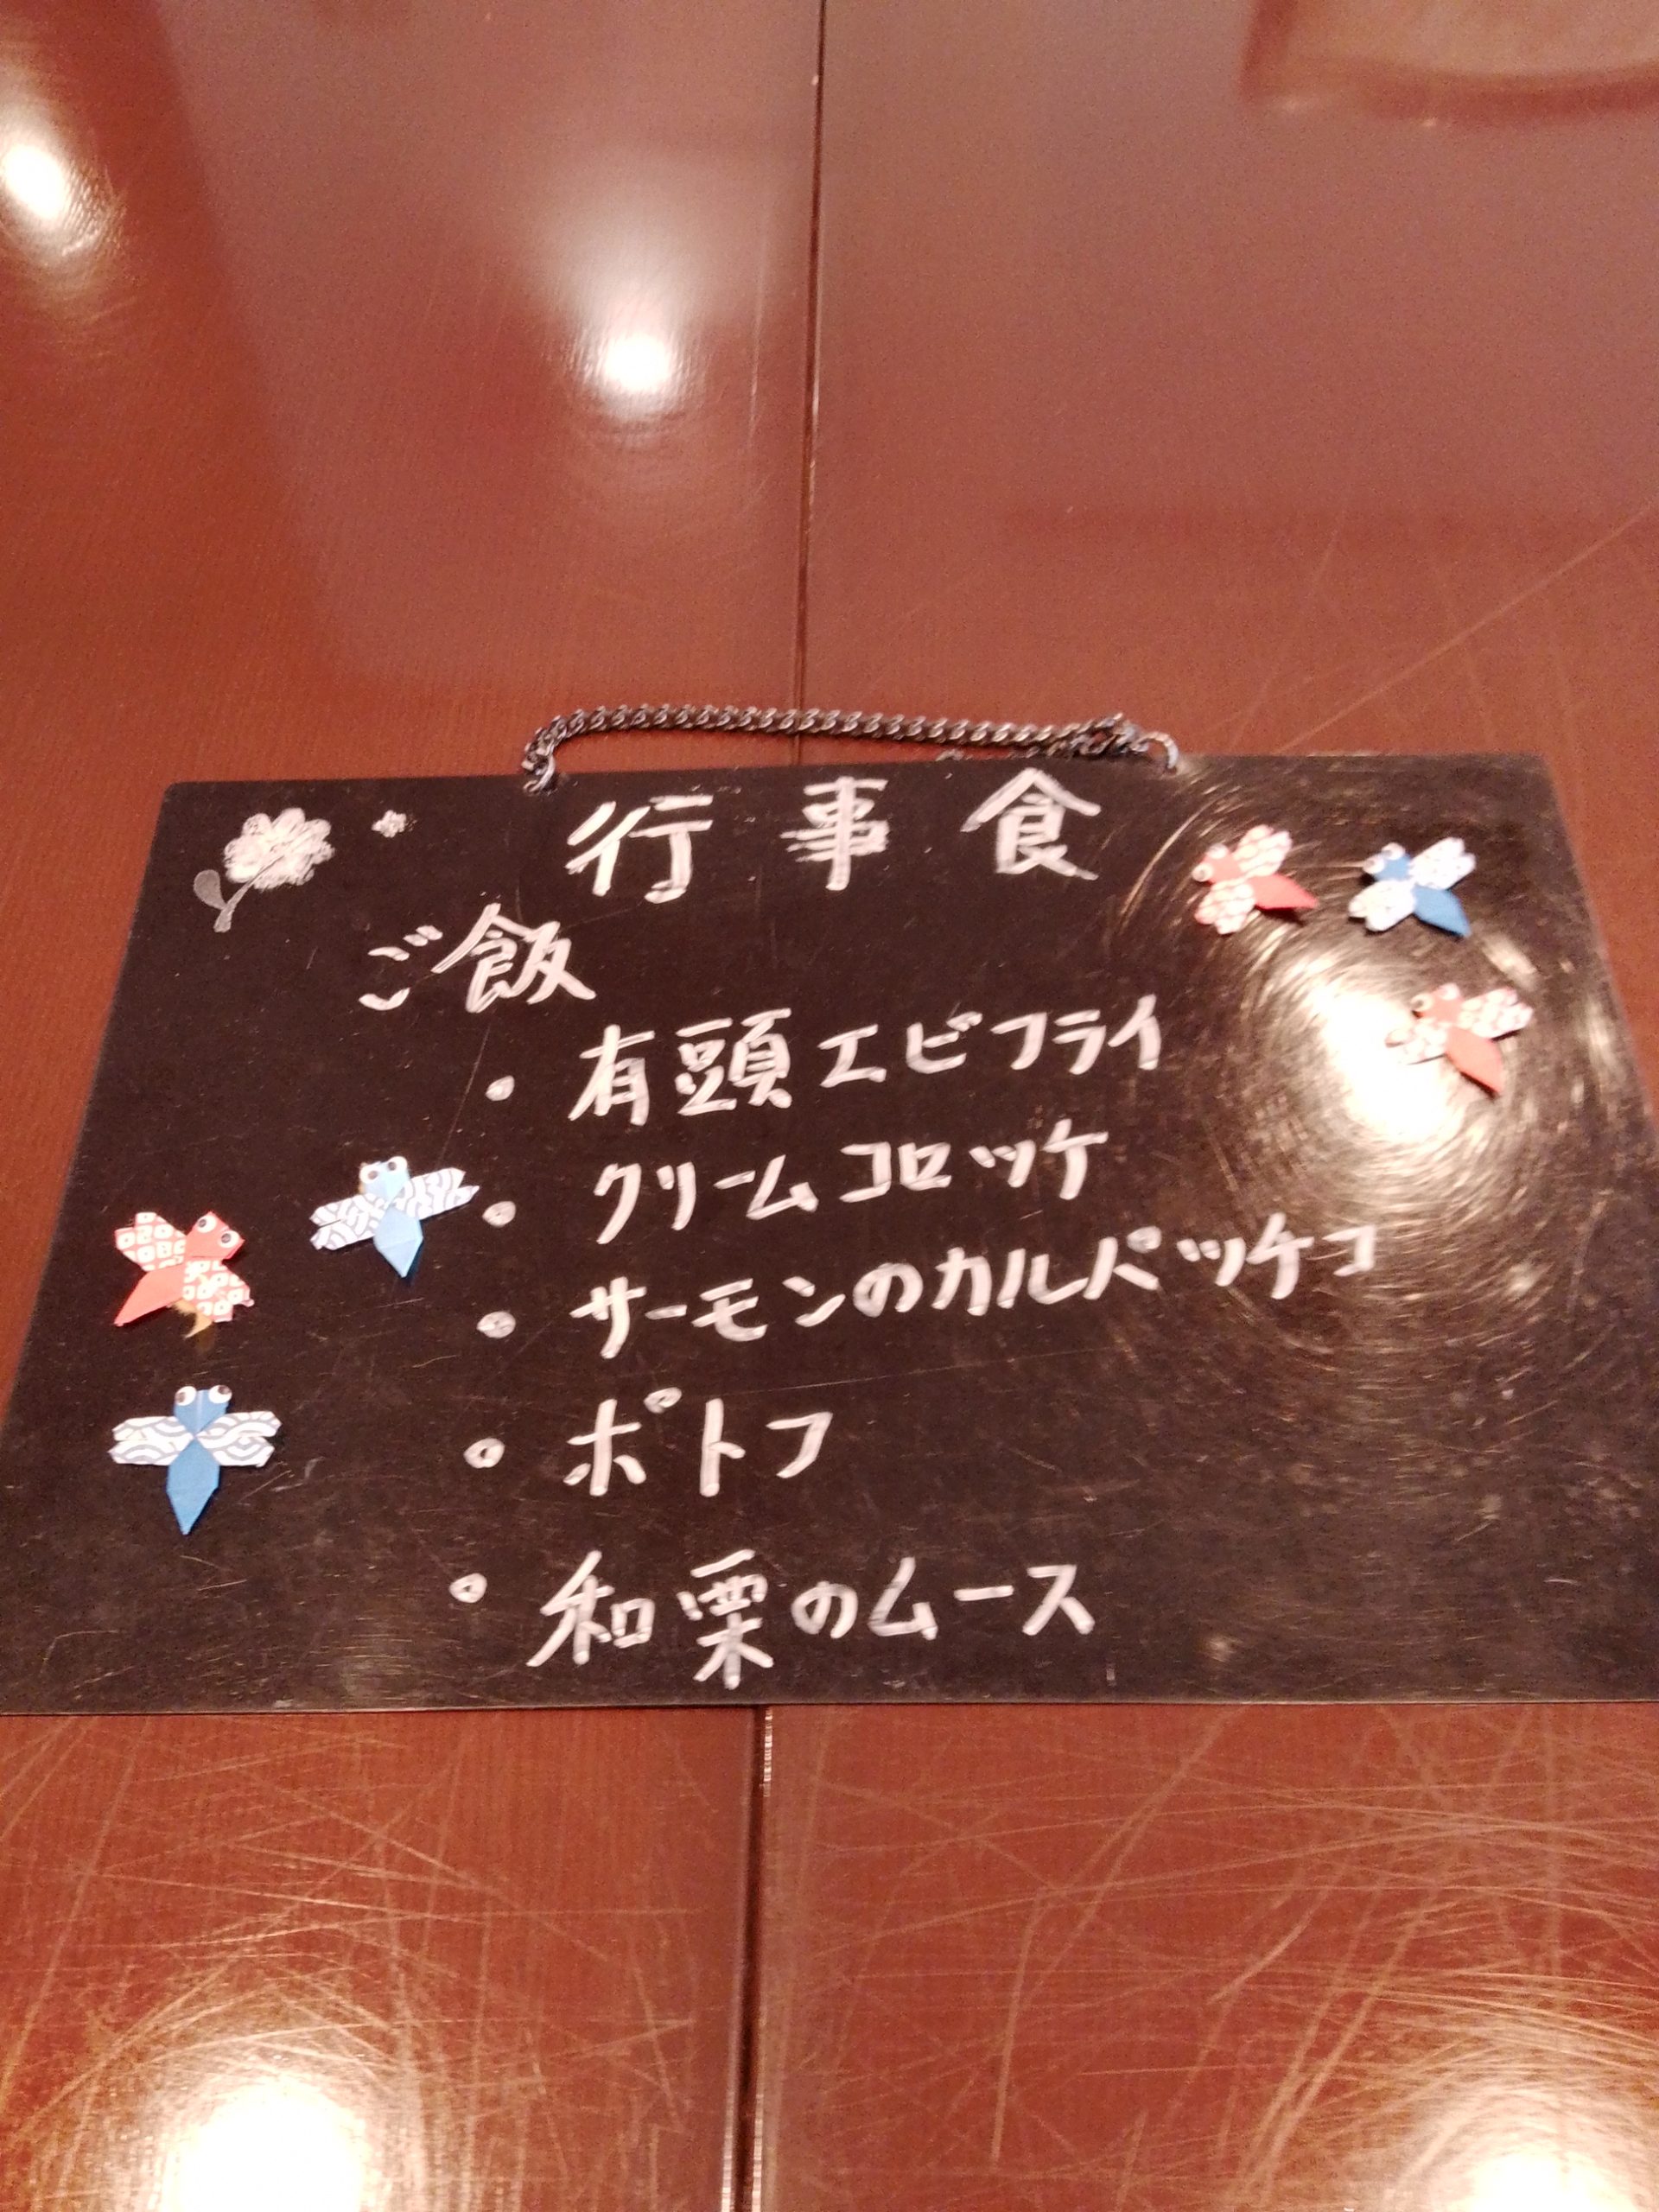 行事食
ご飯
・有頭エビフライ
・クリームコロッケ
・サーモンのカルパッチョ
・ポトフ
・和栗のムース